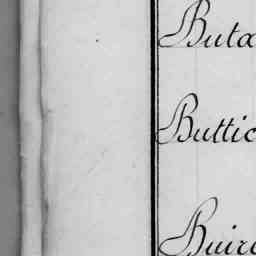 Buta
Buttic
Buire